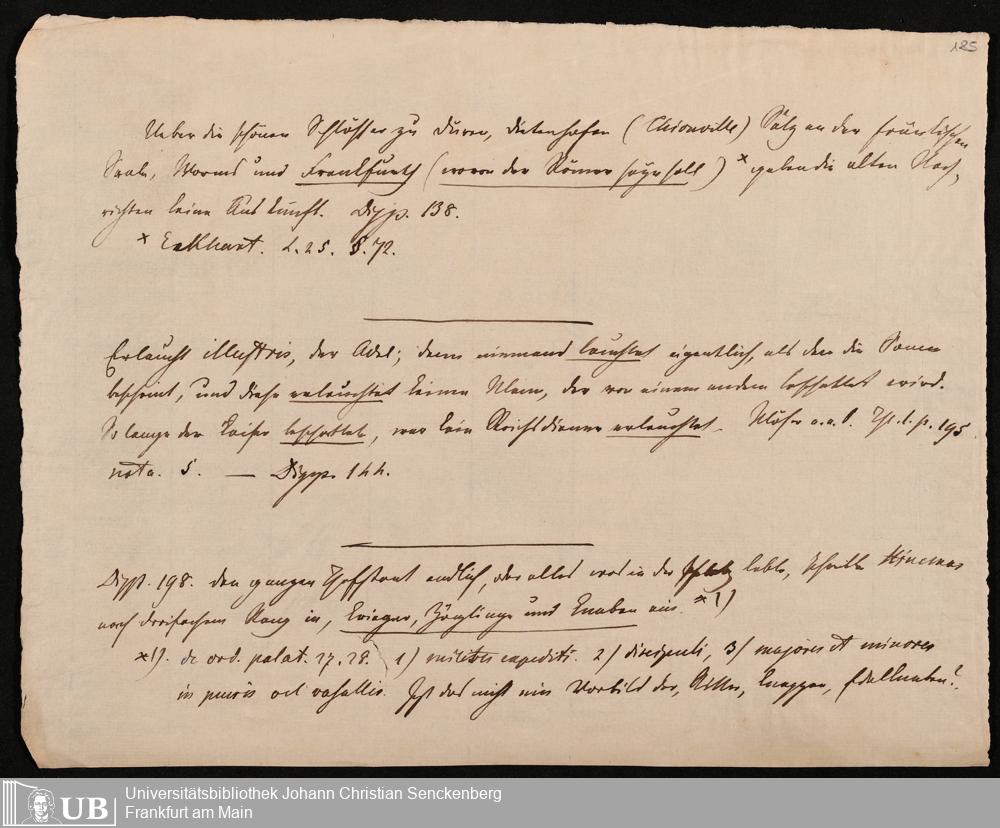 125
Ueber die schönen Schlösser zu Düren, Dietenhofen (Thionville) Salz an der fränkischen
Saale, Worms und Frankfurth (wovon der Römer seyn soll) x geben die alten Nach-
richten keine Auskunft. Dipp. 138.
x Eckhart. L. 25. §. 72.
Erlaucht illustris, der Adel; denn niemand leuchtet eigentlich, als den die Sonne
bescheint, und diese erleuchtet keinen Mann, der von einem andern beschattet wird.
So lange der Kaiser beschattete, war kein Reichsdiener erleuchtet. Möser a. a. O. Th. 1. p. 195
nota. 5. — Dipp. 144.
Dipp. 198. den ganzen Hofstaat endlich, oder alles was in der Pfalz lebte, theilte Hincmar
nach dreifachem Rang in, Krieger, Zöglinge und Knaben ein. x 1)
x 1). de ord. palat. 27. 28. 1) milites expediti. 2) discipuli, 3) majores et minores
in pueris vel vasallis. Ist das nicht ein Vorbild der, Ritter, Knappen, Edelknaben?.
UB
Universitätsbibliothek Johann Christian Senckenberg
Frankfurt am Main